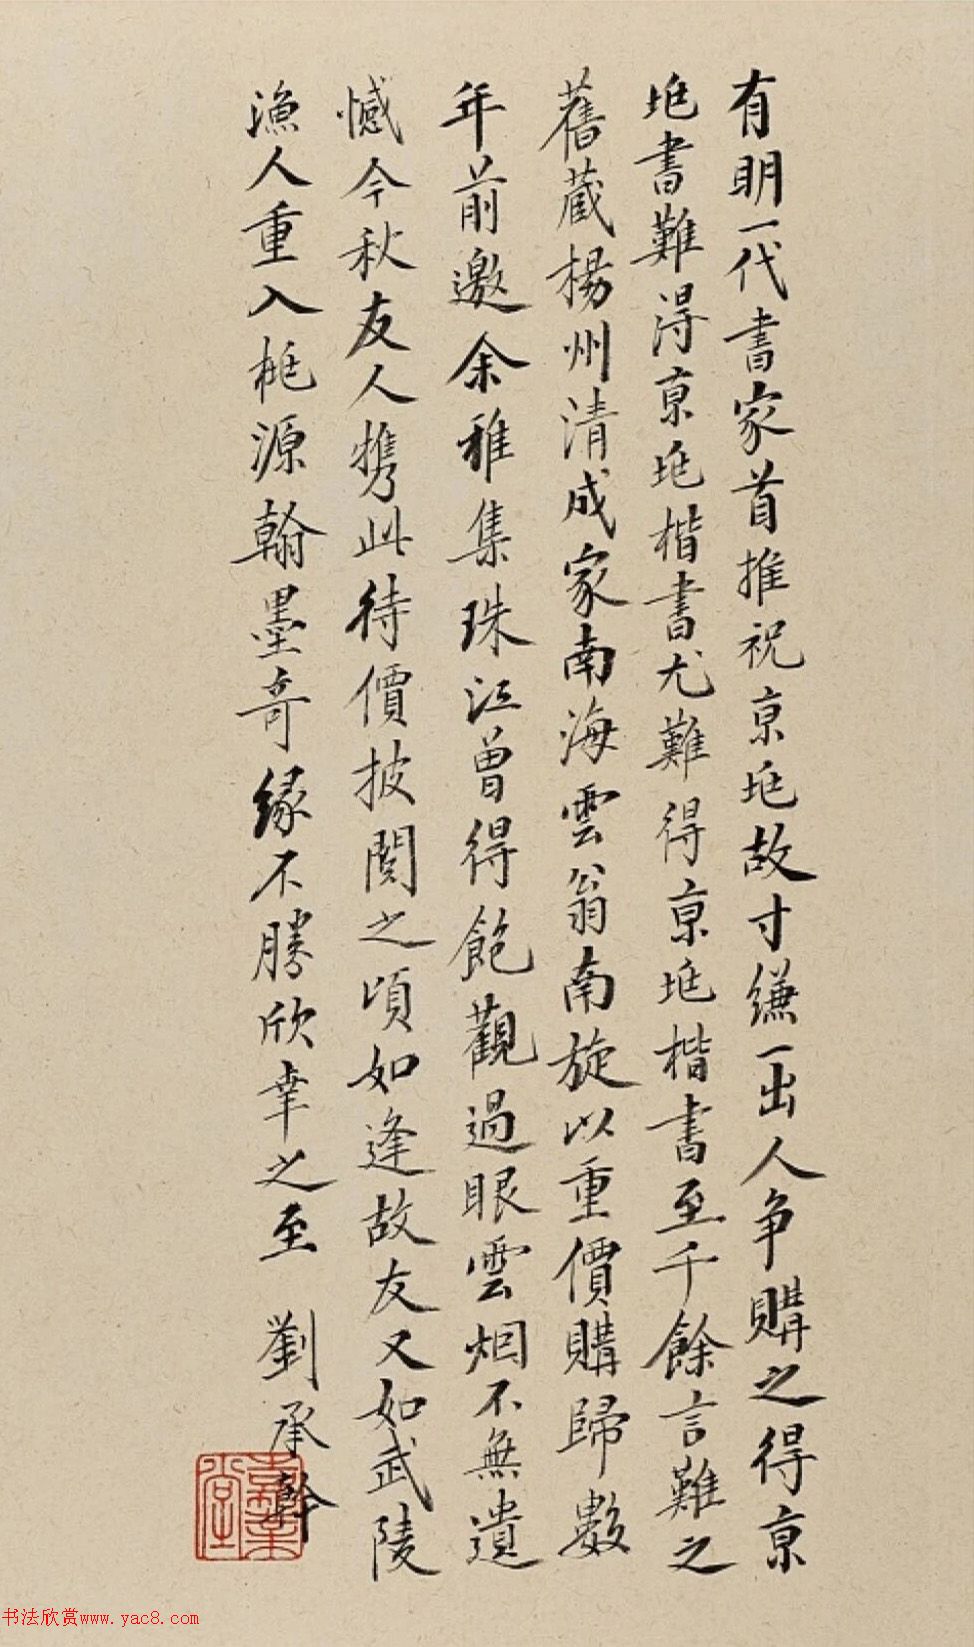 有明一代書家首推祝京垝故寸縑一出人争購之得京
垝書難淂京垝楷書尤難得京垝楷書至千餘言難之
舊蔵楊州清成家南海雲翁南旋以重價購歸數
年前邀余雅集珠江曽得飽觀過眼雲烟不無遺
憾今秋友人携此待價披閱之頃如逢故友又如武陵
漁人重入桃源翰墨奇縁不勝欣幸之至 劉承幹
嘉業堂
书法欣赏www.yac8.com